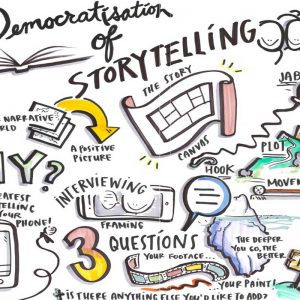 Democratisation
of
STORYTELLING
THE STORY
JAB
NARRATIVE
A POSITIVE
PICTURE
CANVAS
HOOK
PLOT
MOVE
HY?
TELLING
YOUR
PHONE!
INTERVIEWING
FRAMING
3 QUESTIONS
YOUR FOOTAGE...
THE DEEPER
YOU GO, THE
BETTER
YOUR PAINT!
IS THERE ANYTHING ELSE YOU'D LIKE TO ADD?